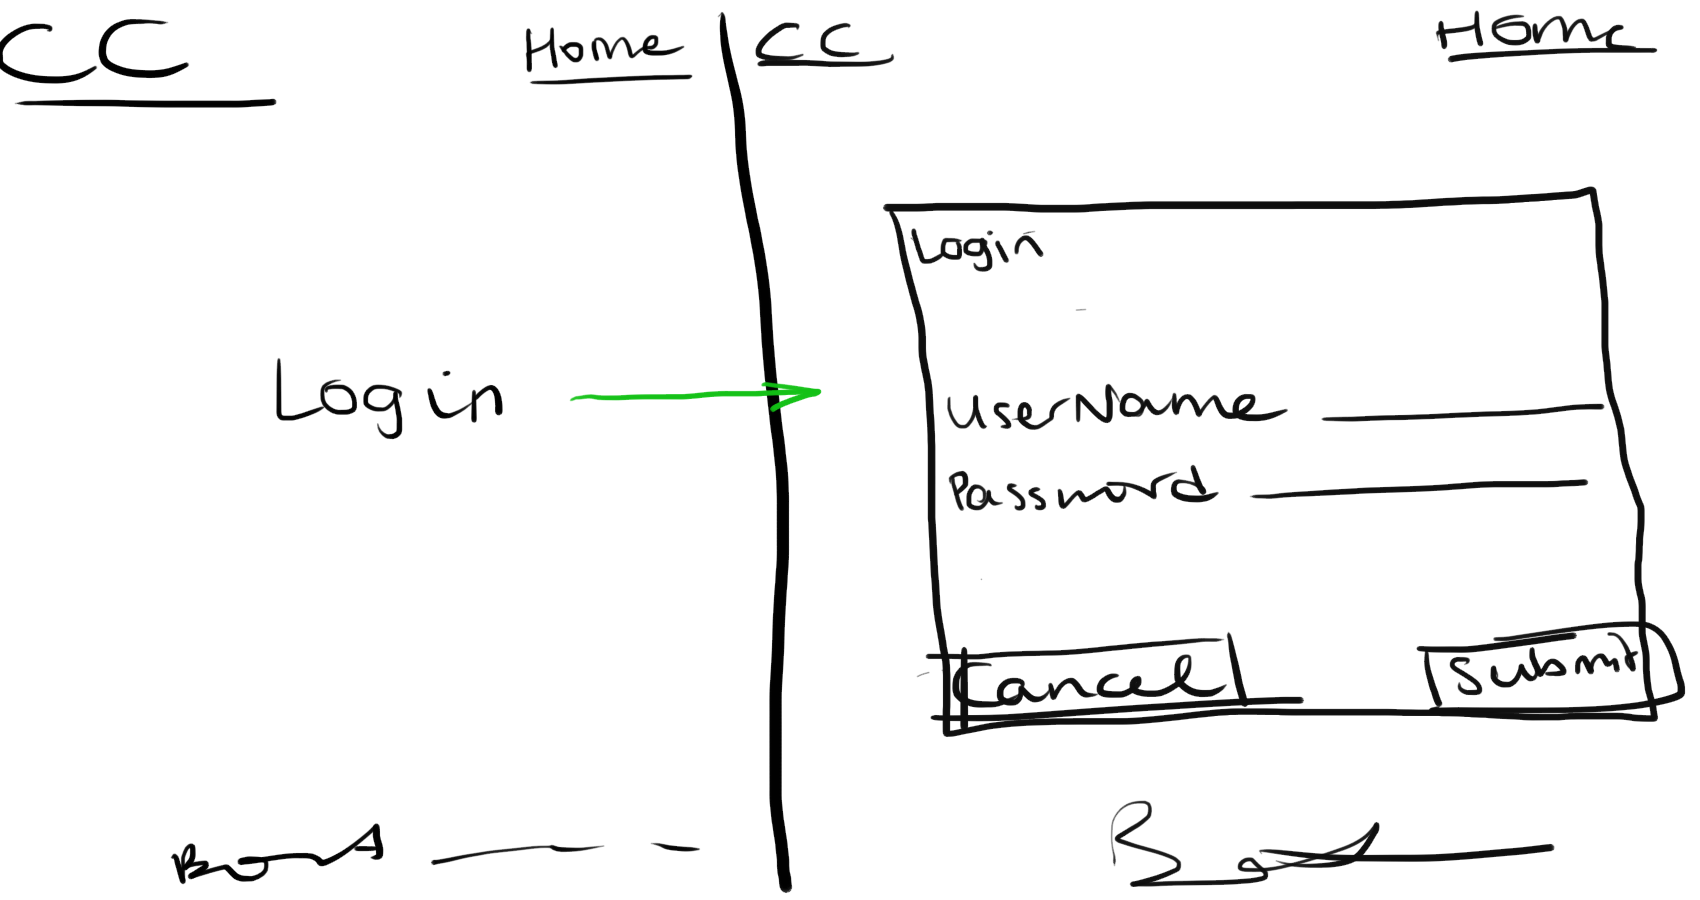 CC Home
Login
CC Home
Login
UserName
Password
Cancel Submit